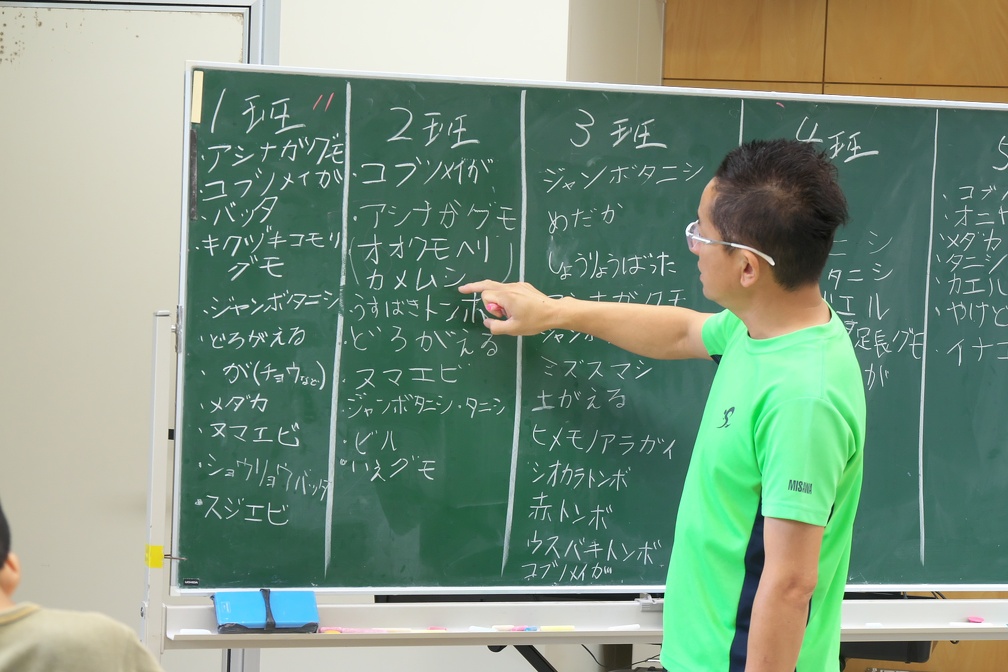 1班
・アシナガグモ
・コブノメイガ
・バッタ
・キクヅキコモリ
グモ
・ジャンボタニシ
・どろがえる
・が(チョウなど)
・メダカ
・ヌマエビ
・ショウリョウバッタ
・スジエビ
2班
・コブノメイガ
・アシナガグモ
(オオクモヘリ
カメムシ)
・うすばきトンボ
・どろがえる
・ヌマエビ
・ジャンボタニシ・タニシ
・ビル
・いえグモ
3班
ジャンボタニシ
めだか
しょうりょうばった
ナガクモ
ジャンボ
ミズスマシ
土がえる
ヒメモノアラガイ
シオカラトンボ
赤トンボ
ウスバキトンボ
コブノメイガ
4班
ニシ
タニシ
エル
足長グモ
が
5
コブ
・オニ
・メダカ
・タニシ
・カエル
・やけど
・イナ
MISAWA